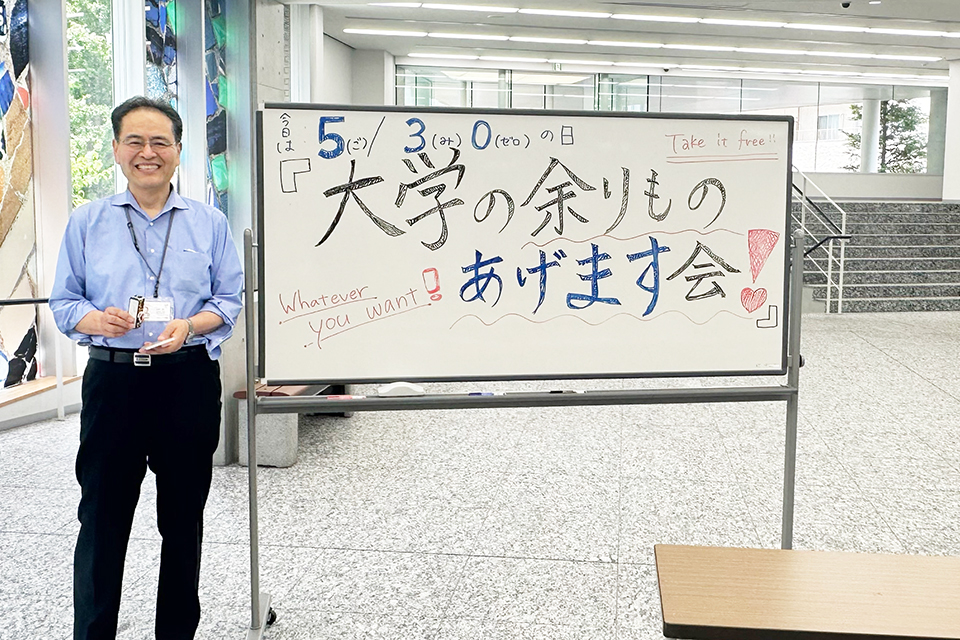 今日は
5(ご)/3(み)0(ゼロ)の日
Take it free!!
『大学の余りもの
あげます会!』
Whatever
you want!